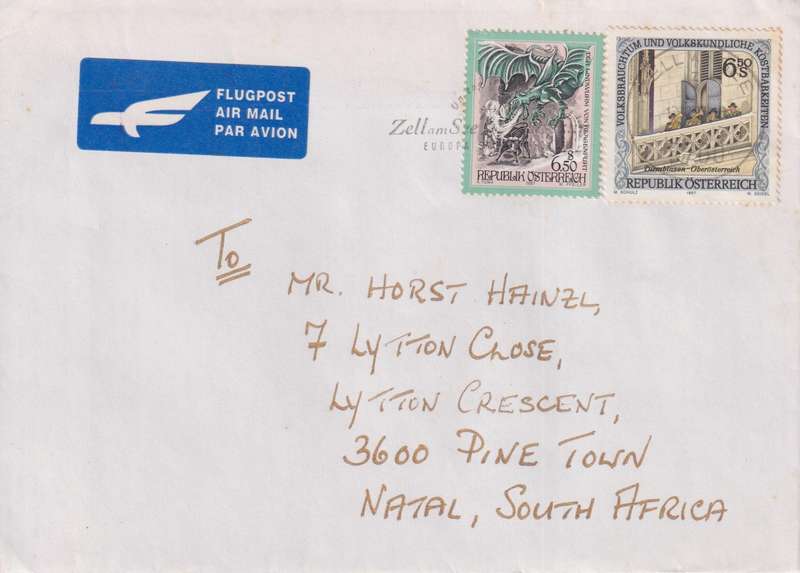 FLUGPOST
AIR MAIL
PAR AVION
Zell am See
EUROPA
6.50 S
REPUBLIK ÖSTERREICH
1997
VOLKSBRAUCHTUM UND VOLKSKUNDLICHE KOSTBARKEITEN
6.50 S
ZELL
Turmblasen-Oberösterreich
REPUBLIK ÖSTERREICH
M. SCHULZ 1997 W. SEIDEL
To
MR. HORST HAINZL,
7 LYTTON CLOSE,
LYTTON CRESCENT,
3600 PINE TOWN
NATAL, SOUTH AFRICA